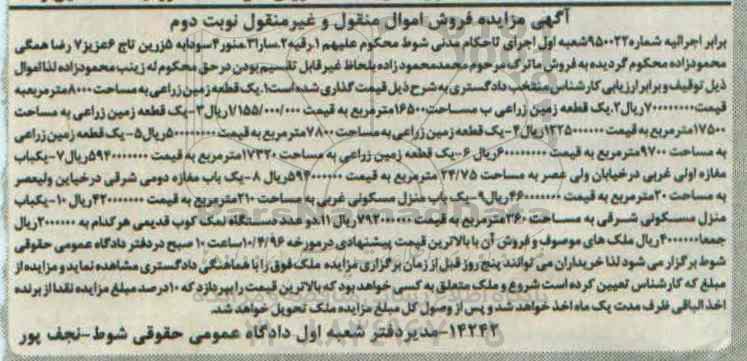 آگهی مزایده فروش اموال منقول و غیرمنقول نوبت دوم
برابر اجرائیه شماره۹۵۰۰۲۲شعبه اول اجرای تاحکام مدنی شوط محکوم علیهم ۱.رقیه۲.سارا۳.منور۴سودابه ۵زرین تاج ۶عزیز۷ رضا همگی
محمودزاده محکوم گردیده به فروش ماترک مرحوم محمدمحمود زاده بلحاظ غیرقابل تقسیم بودن در حق محکوم له زینب محمودزاده لذااموال
ذیل توقیف و برابر ارزیابی کارشناس منتخب دادگستری به شرح ذیل قیمت گذاری شده است۱.یک قطعه زمین زراعی به مساحت ۸۰۰۰مترمربعبه
قیمت۷۰۰۰۰۰۰۰۰ریال۲.یک قطعه زمین زراعی ب مساحت۱۶۵۰۰مترمربع به قیمت ۱/۱۵۵/۰۰۰/۰۰۰ریال۳-یک قطعه زمین زراعی به مساحت
۱۷۵۰۰مترمربع به قیمت ۱۳۲۵۰۰۰۰۰۰ریال۴-یک قطعه زمین زراعی به مساحت ۷۸۰۰مترمربع به قیمت ۵۰۰۰۰۰۰۰۰ریال۵-یک قطعه زمین زراعی
به مساحت ۹۷۰۰مترمربع به قیمت ۶۰۰۰۰۰۰۰۰ریال ۶-یک قطعه زمین زراعی به مساحت ۱۷۳۲۰مترمربع به قیمت ۵۹۴۰۰۰۰۰۰۰ریال۷-یکباب
مغازه اولی غربی درخیابان ولی عصر به مساحت ۲۴/۷۵ مترمربع به قیمت ۵۹۴۰۰۰۰۰۰ریال ۸-یک باب مغازه دومی شرقی درخیاین ولیعصر
به مساحت ۲۰مترمربع به قیمت ۴۶۰۰۰۰۰۰۰ریال۹-یک باب منزل مسکونی غربی به مساحت ۲۱۰مترمربع به قیمت ۴۲۰۰۰۰۰۰۰ریال ۱۰-یکباب
منزل مسکونی شرقی به مساحت ۳۶۰مترمربع به قیمت ۷۹۲۰۰۰۰۰۰ریال ۱۱.دو عدد دستگاه نمک کوب قدیمی هرکدام به ۲۰۰۰۰۰۰ریال
جمعا۴۰۰۰۰۰۰ریال ملک های موصوف و فروش آن با بالاترین قیمت پیشنهادی درمورخه ۱۰/۴/۹۶ساعت ۱۰ صبح در دفتر دادگاه عمومی حقوقی
شوط برگزار می شود لذا خریداران می توانند پنج روز قبل از زمان برگزاری مزایده ملک فوق را با هماهنگی دادگستری مشاهده نماید و مزایده از
مبلغ که کارشناس تعیین کرده است شروع و ملک متعلق به کسی خواهد بود که بالاترین قیمت رابپردازد که ۱۰درصد مبلغ مزایده نقدا از برنده
اخذ الباقی ظرف مدت یک ماه اخذ خواهد شد و پس از وصول کل مبلغ مزایده ملک تحویل خواهد شد.
۱۴۲۴۲-مدیردفتر شعبه اول دادگاه عمومی حقوقی شوط-نجف پور